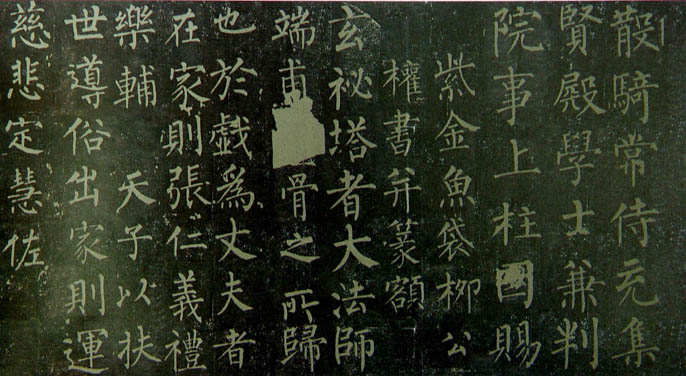 散騎常侍充集
賢殿學士兼判
院事上柱國賜
紫金魚袋柳公
權書并篆額
玄祕塔者大法師
端甫骨之所歸
也於戲爲丈夫者
在家則張仁義禮
樂輔 天子以扶
世導俗出家則運
慈悲定慧佐